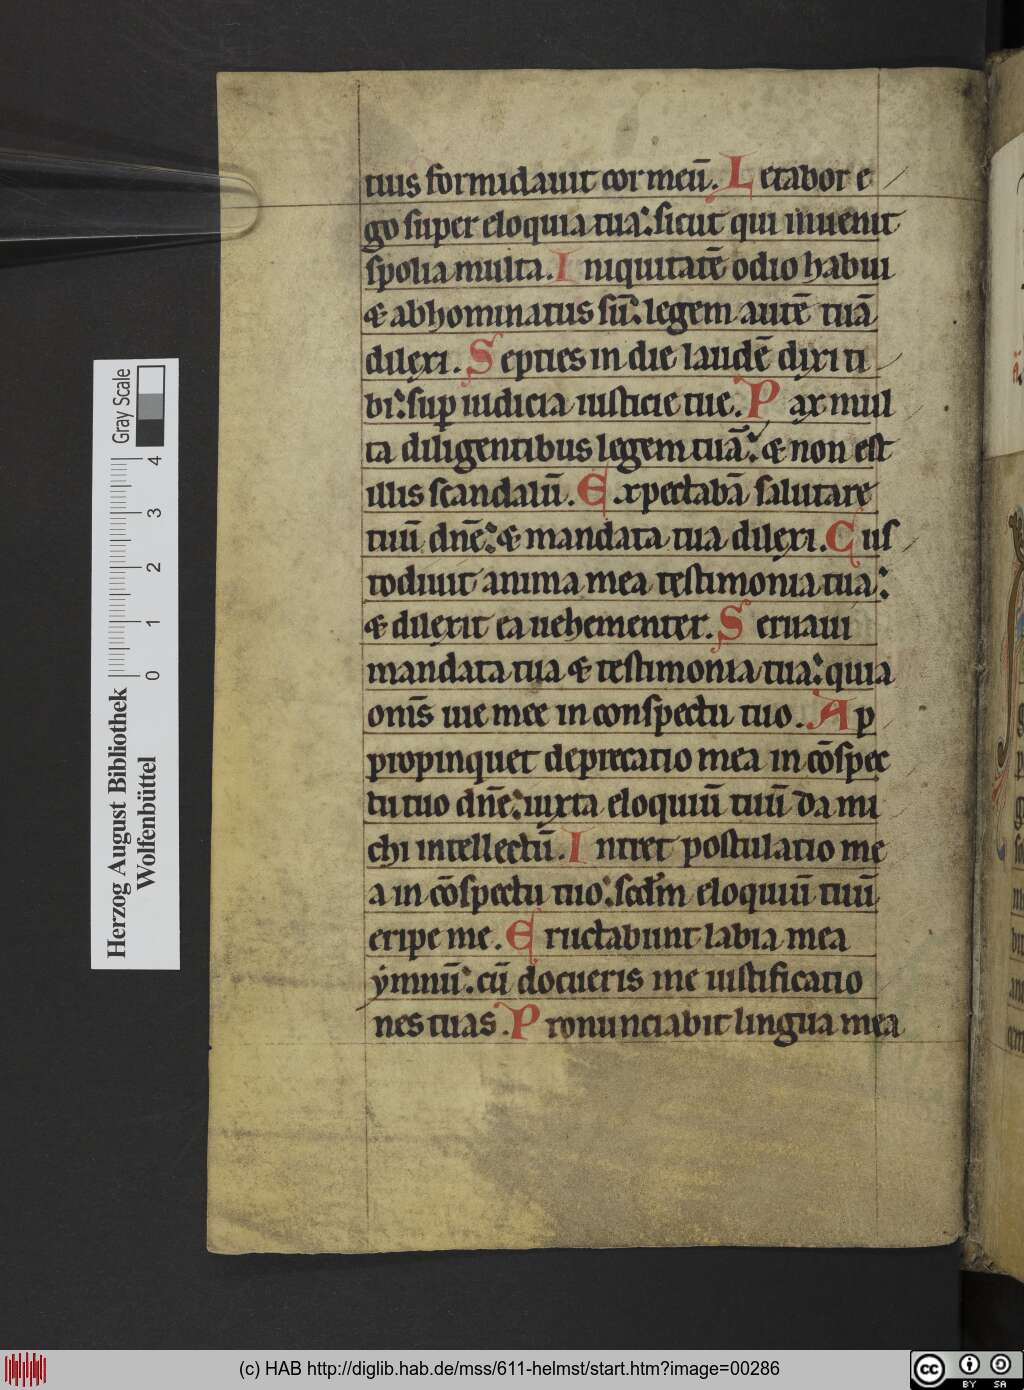 tuis formidauit cor meū. Letabor e
go super eloquia tua: sicut qui inuenit
spolia multa. Iniquitatē odio habui
& abhominatus sū: legem autē tuā
dilexi. Septies in die laudē dixi ti
bi: sup iudicia iusticie tue. Pax mul
ta diligentibus legem tuā: & non est
illis scandalū. Expectabā salutare
tuū dnē: & mandata tua dilexi. Cus
todiuit anima mea testimonia tua:
& dilexit ea uehementer. Seruaui
mandata tua & testimonia tua: quia
omīs uie mee in conspectu tuo. Ap
propinquet deprecatio mea in cōspec
tu tuo dnē: iuxta eloquiū tuū da mi
chi intellectū. Intret postulatio me
a in cōspectu tuo: scdm eloquiū tuū
eripe me. Eructabunt labia mea
ẏmnū: cū docueris me iustificatio
nes tuas. Pronunciabit lingua mea
Herzog August Bibliothek
Wolfenbüttel
Gray Scale
0 1 2 3 4
(c) HAB http://diglib.hab.de/mss/611-helmst/start.htm?image=00286
cc BY SA